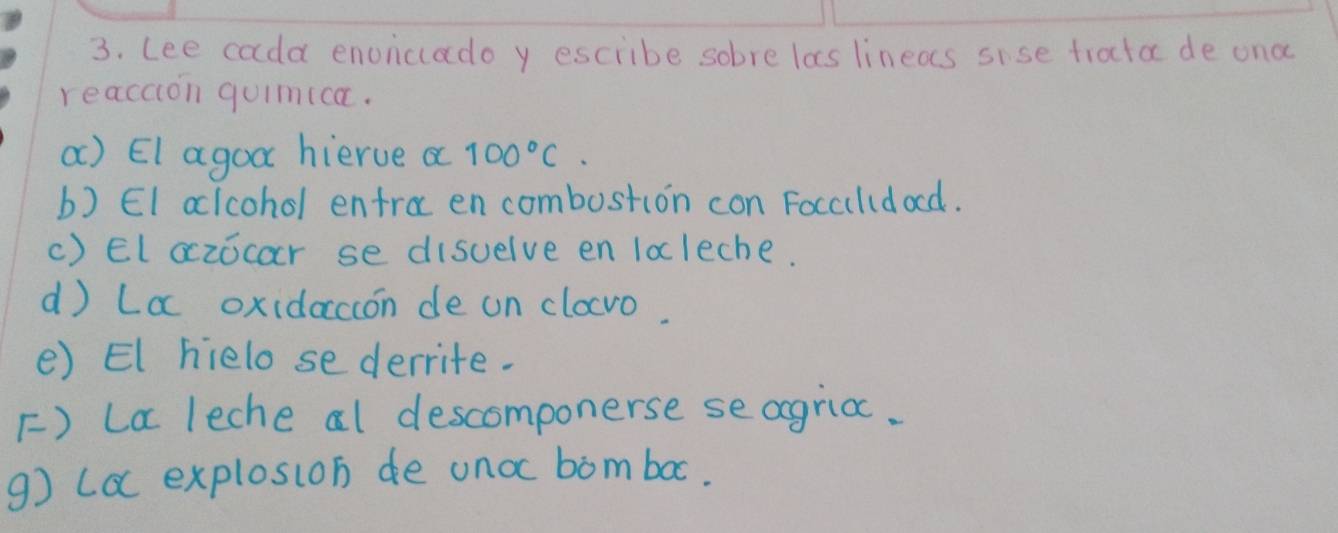 3. Lee cada enunciado y escribe sobre las lineas si se trata de una
reacción quimica.
a) El agua hierve a 100°C.
b) El alcohol entra en combustión con Facilidad.
c) El azúcar se disuelve en la leche.
d) La oxidacción de un clavo.
e) El hielo se derrite.
F) La leche al descomponerse se agria.
g) La explosion de una bomba.